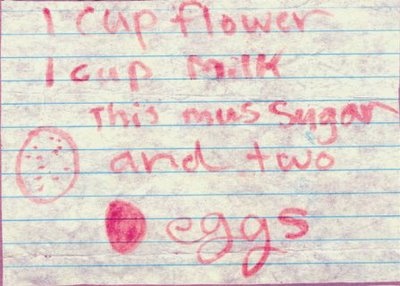 1 cup flower
1 cup Milk
This mus Sugar
and two
eggs